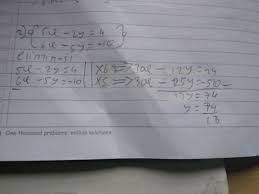 2) 5x - 2y = 4
6x - 5y = -10
5x - 2y = 4 | x6 => 30x - 12y = 24
6x - 5y = -10 | x5 => 30x - 25y = -50
13y = 74
y = 74
13
One thousand problems, million solutions